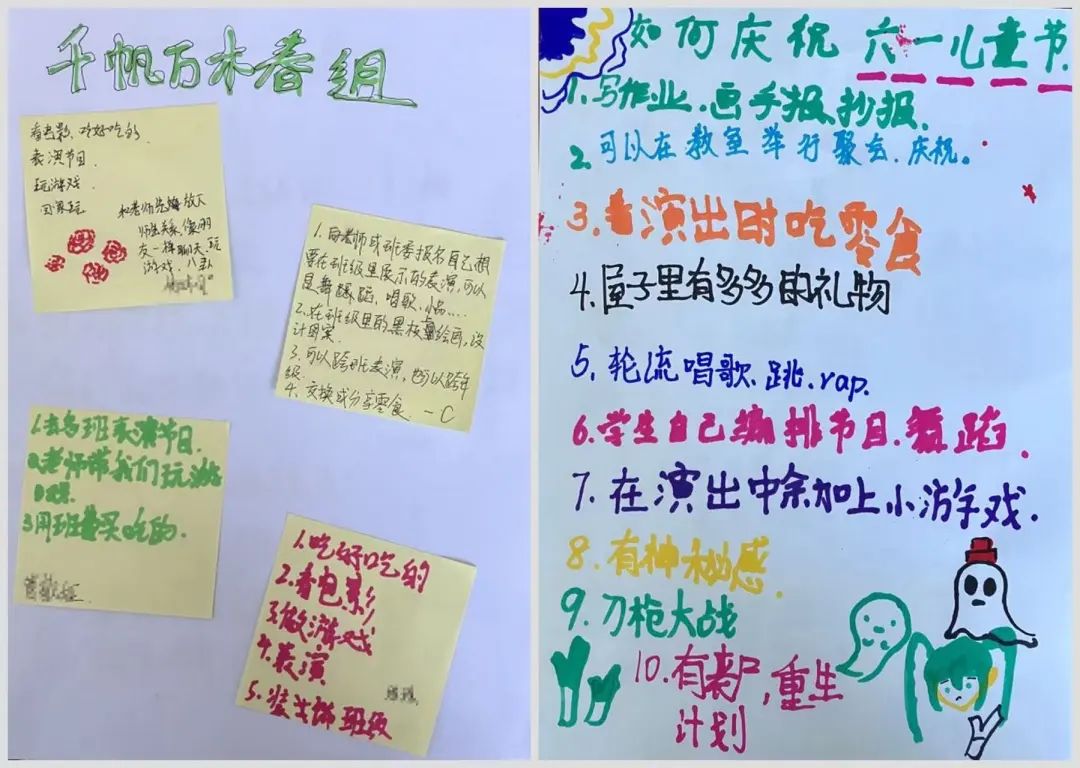 千帆万木春组
看电影、吃好吃的
表演节目.
玩游戏.
回家玩
和老师
师生关系像朋
友一样聊天、玩
游戏、八卦
1.向老师或班委报名自己想
要在班级里展示的表演,可以
是舞蹈、唱歌、小品....
2.在班级里的黑板绘画,设
计图案.
3.可以跨班表演,也可以跨年
级.
4.交换或分享零食. —C
1.去各班表演节目.
2.老师带我们玩游
戏.
3.用班费买吃的.
1.吃好吃的
2.看电影
3.做游戏
4.表演
5.装饰班级
如何庆祝六一儿童节.
1.写作业.画手报.抄报.
2.可以在教室举行聚会.庆祝。
3.看演出时吃零食
4.屋子里有多多的礼物
5.轮流唱歌、跳.rap.
6.学生自己编排节目.舞蹈.
7.在演出中添加上小游戏.
8.有神秘感.
9.刀枪大战
10.有 ,重生
计划